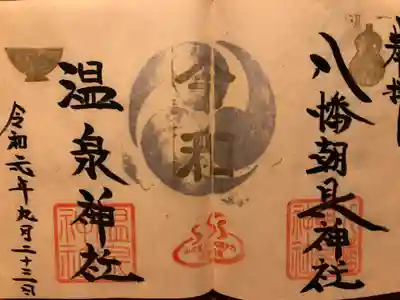 奉拝
八幡朝見神社
令和
温泉神社
令和元年九月二十三日